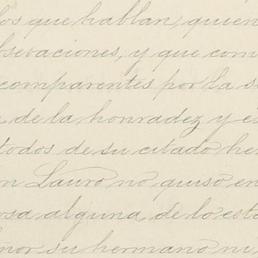 los que hablan, quien
bservaciones, y que com
comparentes por la s
de la honradez y es
todos de su citado he
n Lauro no quiso en
osa alguna de lo esta
nor su hermano ni